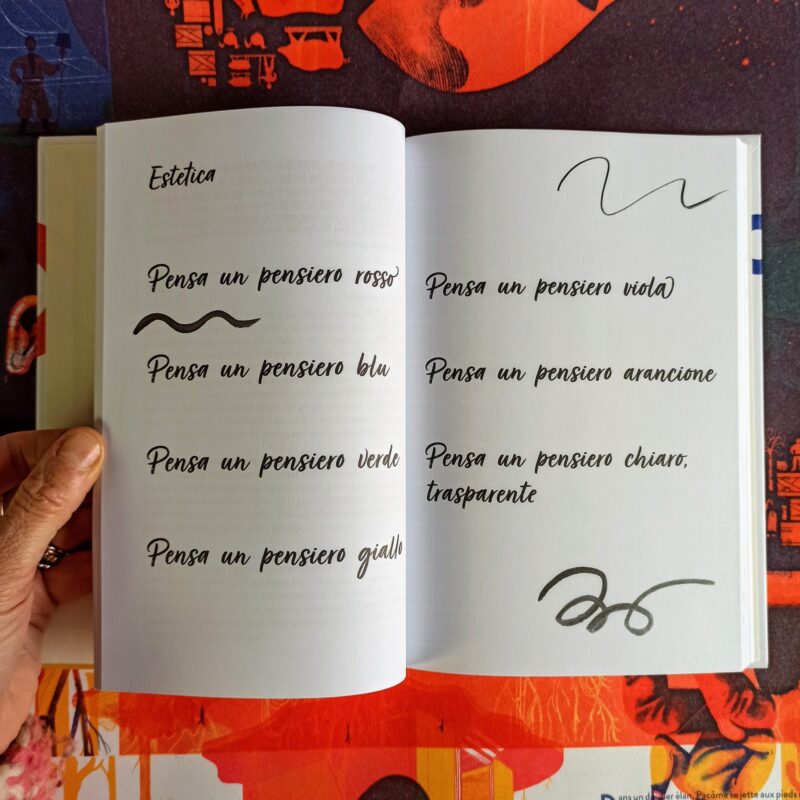 Estetica
Pensa un pensiero rosso
Pensa un pensiero blu
Pensa un pensiero verde
Pensa un pensiero giallo
Pensa un pensiero viola
Pensa un pensiero arancione
Pensa un pensiero chiaro,
trasparente
ans un dernier élan, Pacôme se jette aux pieds